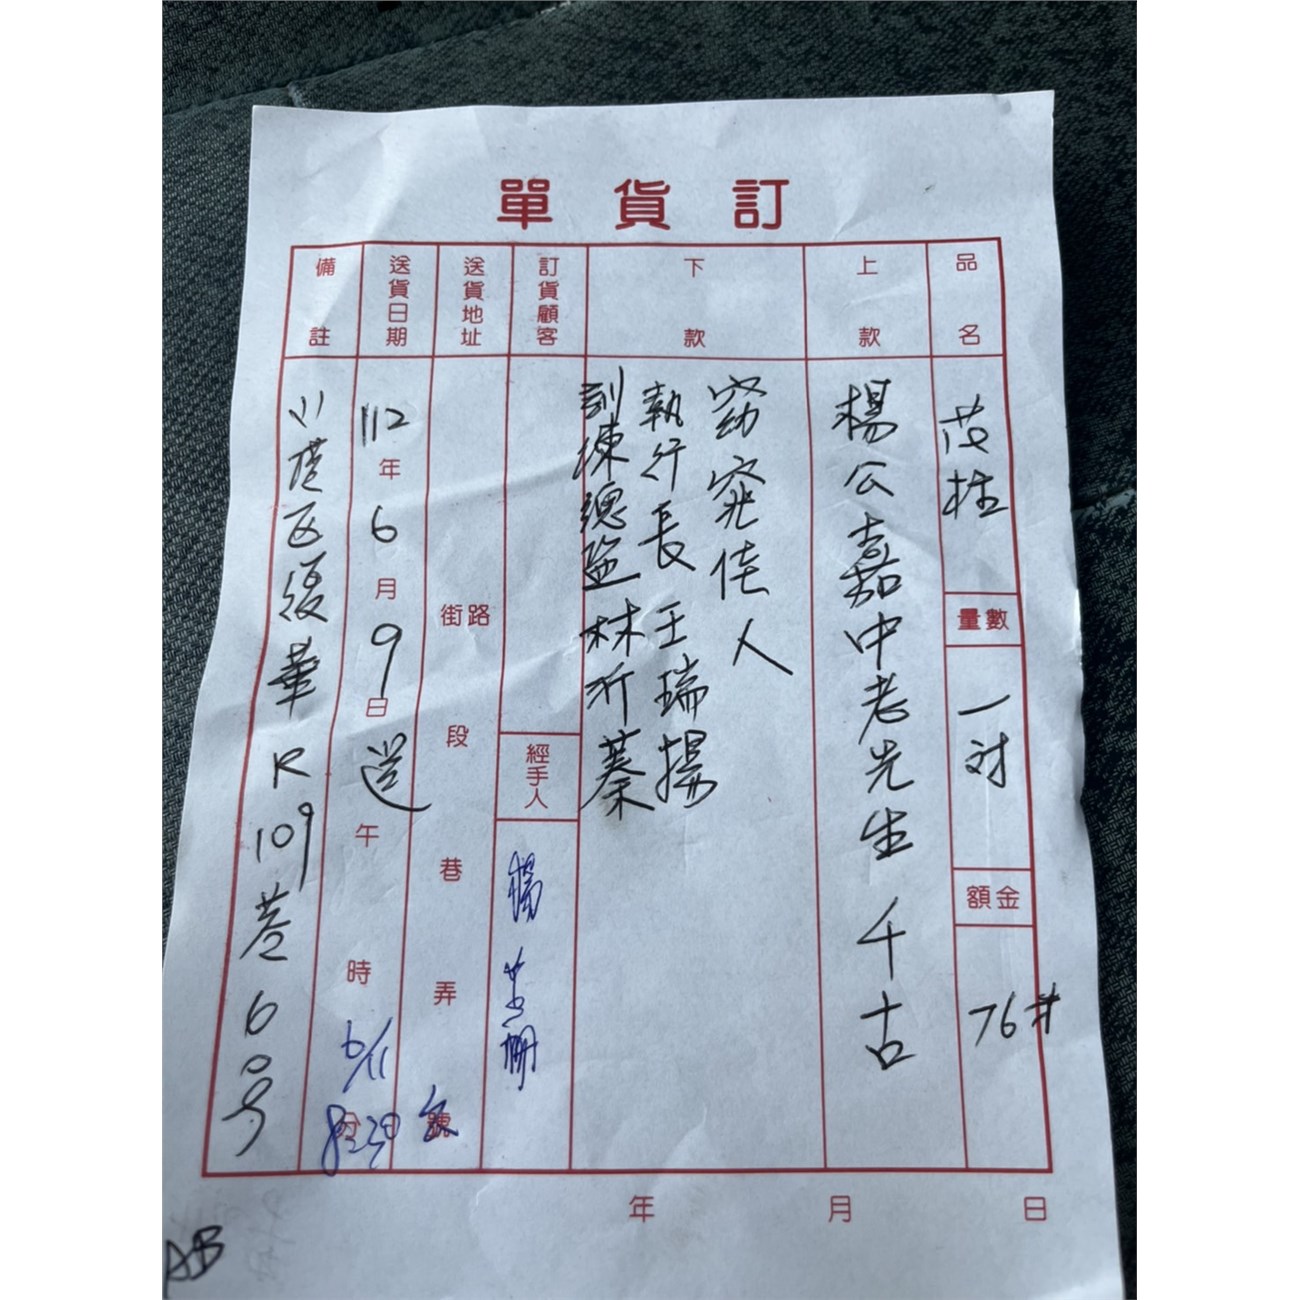 訂貨單
品名
花柱
數量
一对
金額
76#
上款
楊公嘉中老先生 千古
下款
窈窕佳人
執行長 王瑞揚
訓練總監 林沂蓁
訂貨顧客
經手人
楊
送貨地址
路街
段
巷
弄
號
送貨日期
112年6月9日送
午
時
6/11
8:30
備註
小港区復華R109巷6号
年 月 日
AB